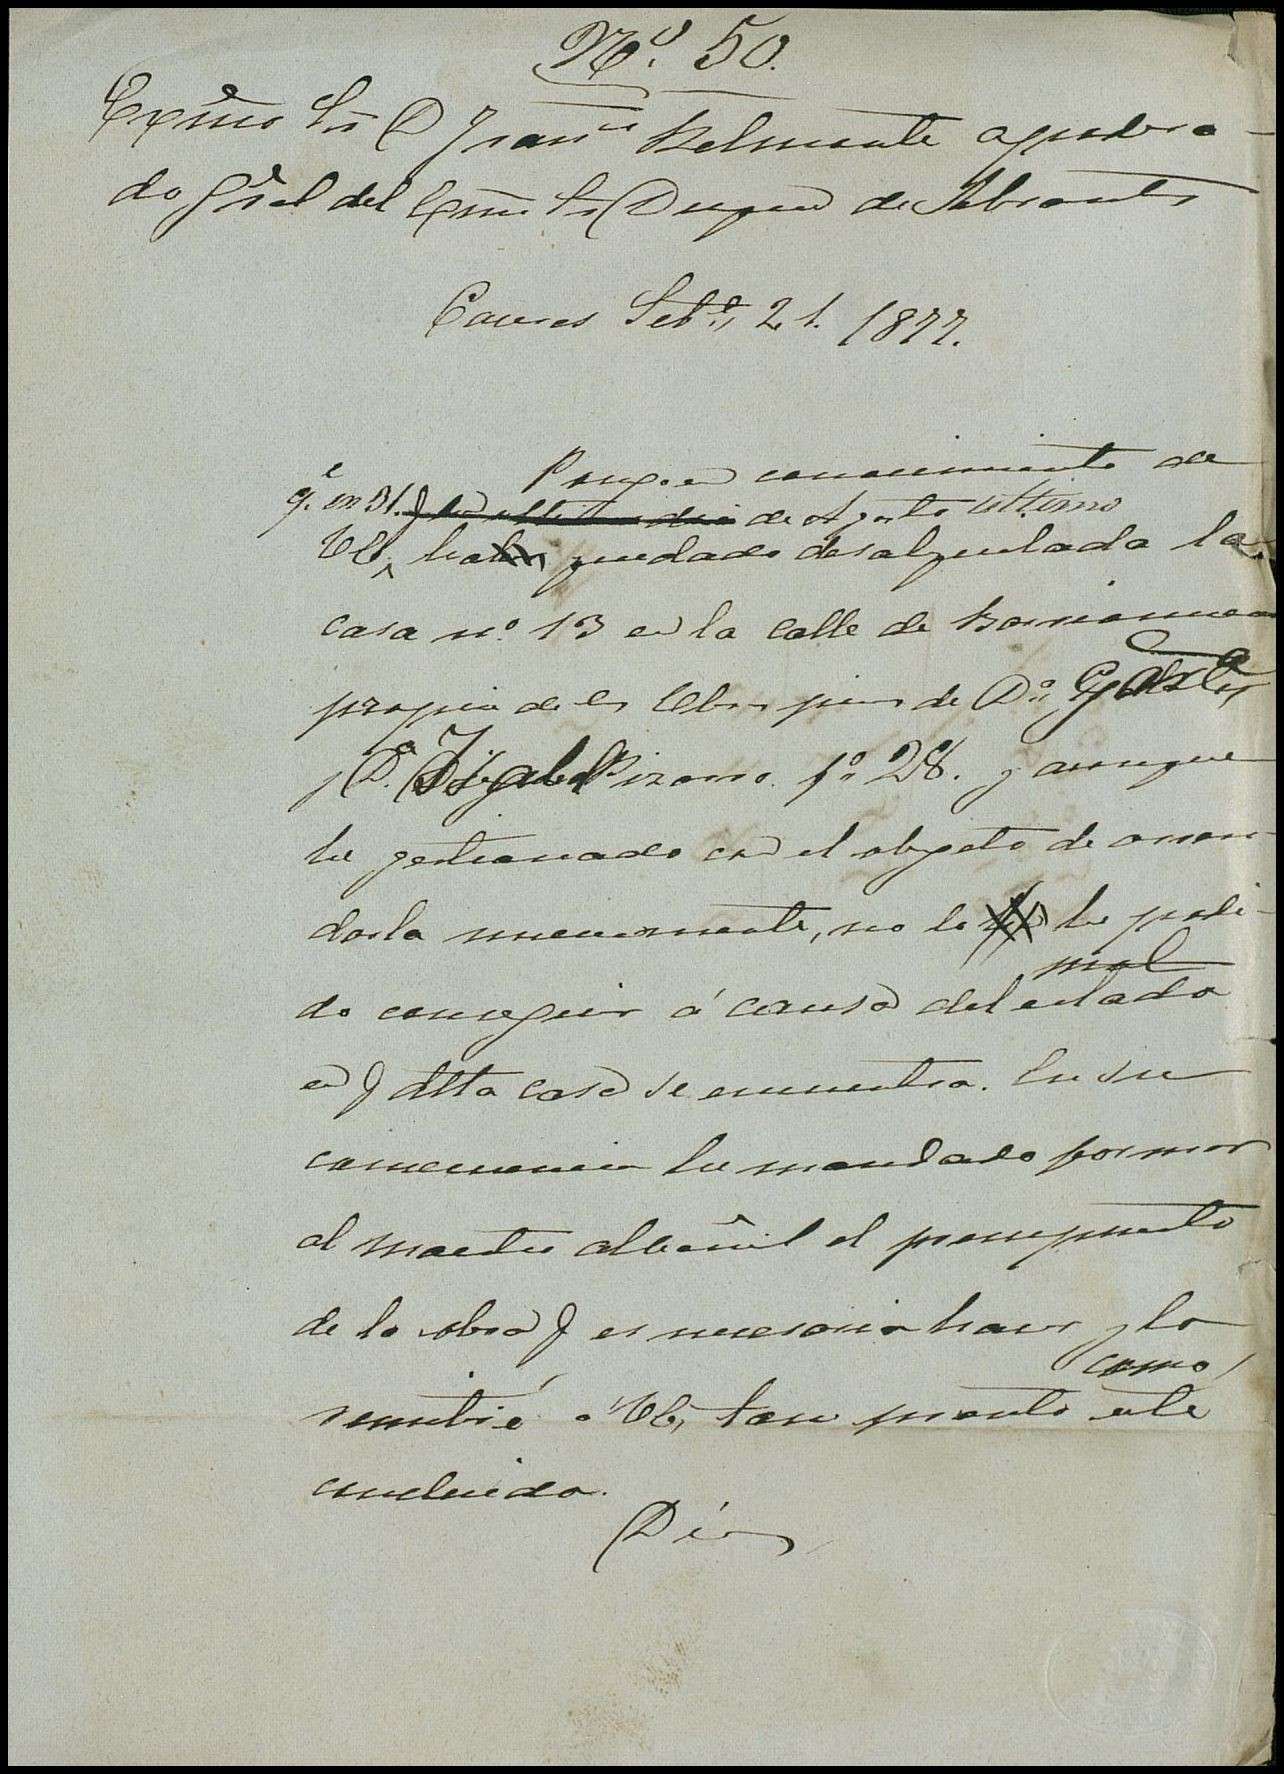 Nº. 50.
Exmo Sr D Franco Belmonte apodera-
do gral del Exmo Sr Duque de Abrantes
Caceres Setbre 21. 1877.
Pongo en conocimiento de
qe. en 31. de Agosto ultimo
VE, ha quedado desalquilada la
casa nº 13 en la calle de
propia de las Obras pias de Da
y Da. Pizarro. fº 28. y aunque
he gestionado con el objeto de arren-
darla nuevamente, no lo he podi-
mal
do conseguir á causa del estado
en q dha casa se encuentra. En su
consecuencia he mandado formar
al maestro albañil el presupuesto
de la obra q es necesario hacer y lo
como
remitiré a VE, tan pronto este
concluido.
Dios